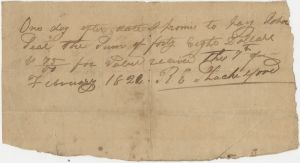 One day after date I promise to pay John
Deal the Sum of forty Eight Dollars
& 75/100 for Value receivd this 7th of
February 1822. R E Lackey